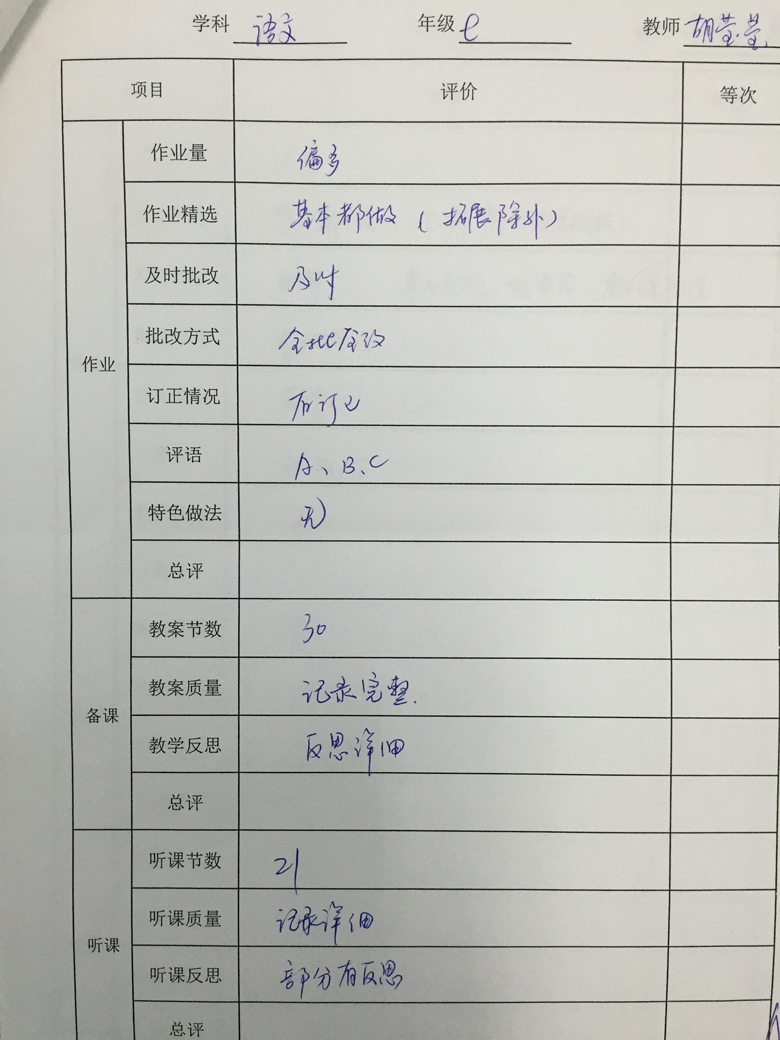 学科 语文 年级 七 教师 胡莹莹
项目 评价 等次
作业
作业量 偏多
作业精选 基本都做（拓展除外）
及时批改 及时
批改方式 全批全改
订正情况 有订正
评语 A、B、C
特色做法 无
总评
备课
教案节数 30
教案质量 记录完整.
教学反思 反思详细
总评
听课
听课节数 21
听课质量 记录详细
听课反思 部分有反思
总评